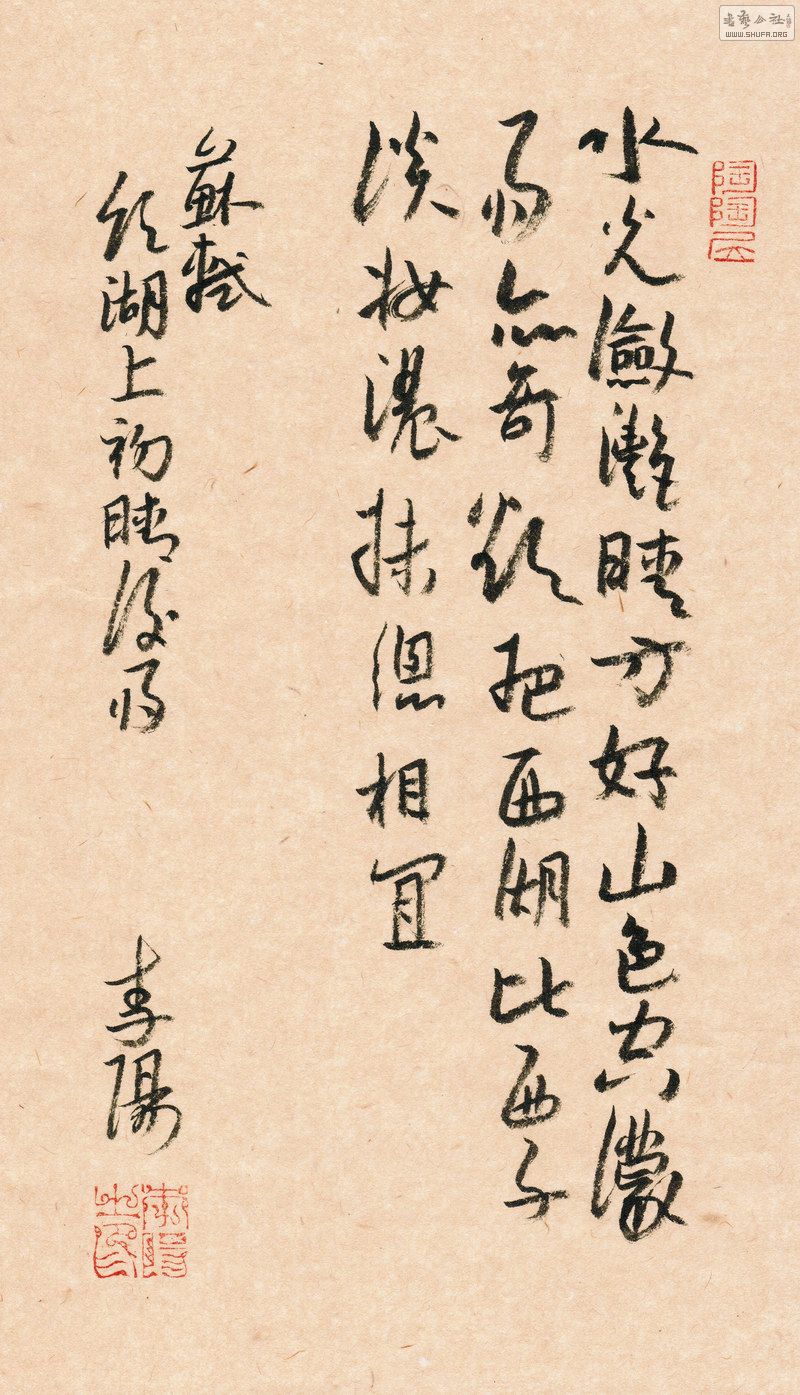 書藝公社
WWW.SHUFA.ORG
水光瀲灩晴方好山色空濛
雨亦奇欲把西湖比西子
淡妝濃抹總相宜
蘇軾
飲湖上初晴後雨 李陽